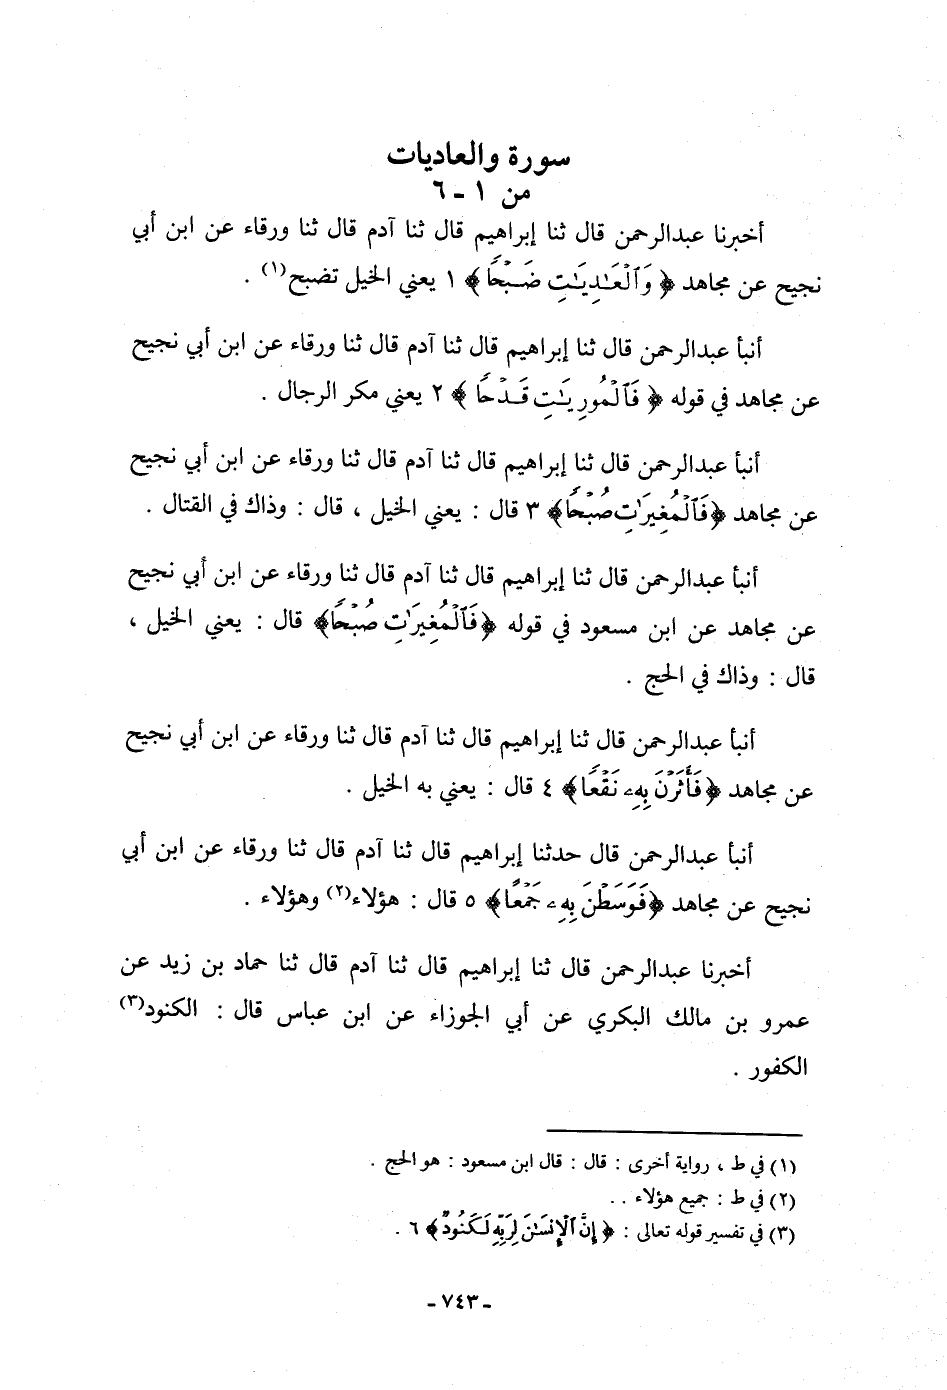 سورة والعاديات
من ١ - ٦
أخبرنا عبدالرحمن قال ثنا إبراهيم قال ثنا آدم قال ثنا ورقاء عن ابن أبي
نجيح عن مجاهد ﴿ وَٱلْعَـٰدِيَـٰتِ ضَبْحًا ﴾ ١ يعني الخيل تضبح(١) .
أنبأ عبدالرحمن قال ثنا إبراهيم قال ثنا آدم قال ثنا ورقاء عن ابن أبي نجيح
عن مجاهد في قوله ﴿ فَٱلْمُورِيَـٰتِ قَدْحًا ﴾ ٢ يعني مكر الرجال .
أنبأ عبدالرحمن قال ثنا إبراهيم قال ثنا آدم قال ثنا ورقاء عن ابن أبي نجيح
عن مجاهد ﴿فَٱلْمُغِيرَٰتِ صُبْحًا﴾ ٣ قال : يعني الخيل ، قال : وذاك في القتال .
أنبأ عبدالرحمن قال ثنا إبراهيم قال ثنا آدم قال ثنا ورقاء عن ابن أبي نجيح
عن مجاهد عن ابن مسعود في قوله ﴿فَٱلْمُغِيرَٰتِ صُبْحًا﴾ قال : يعني الخيل ،
قال : وذاك في الحج .
أنبأ عبدالرحمن قال ثنا إبراهيم قال ثنا آدم قال ثنا ورقاء عن ابن أبي نجيح
عن مجاهد ﴿فَأَثَرْنَ بِهِۦ نَقْعًا﴾ ٤ قال : يعني به الخيل .
أنبأ عبدالرحمن قال حدثنا إبراهيم قال ثنا آدم قال ثنا ورقاء عن ابن أبي
نجيح عن مجاهد ﴿فَوَسَطْنَ بِهِۦ جَمْعًا﴾ ٥ قال : هؤلاء(٢) وهؤلاء .
أخبرنا عبدالرحمن قال ثنا إبراهيم قال ثنا آدم قال ثنا حماد بن زيد عن
عمرو بن مالك البكري عن أبي الجوزاء عن ابن عباس قال : الكنود(٣)
الكفور .
(١) في ط ، رواية أخرى : قال : قال ابن مسعود : هو الحج .
(٢) في ط : جميع هؤلاء . .
(٣) في تفسير قوله تعالى : ﴿ إِنَّ ٱلْإِنسَـٰنَ لِرَبِّهِۦ لَكَنُودٌ ﴾ ٦ .
- ٧٤٣ -